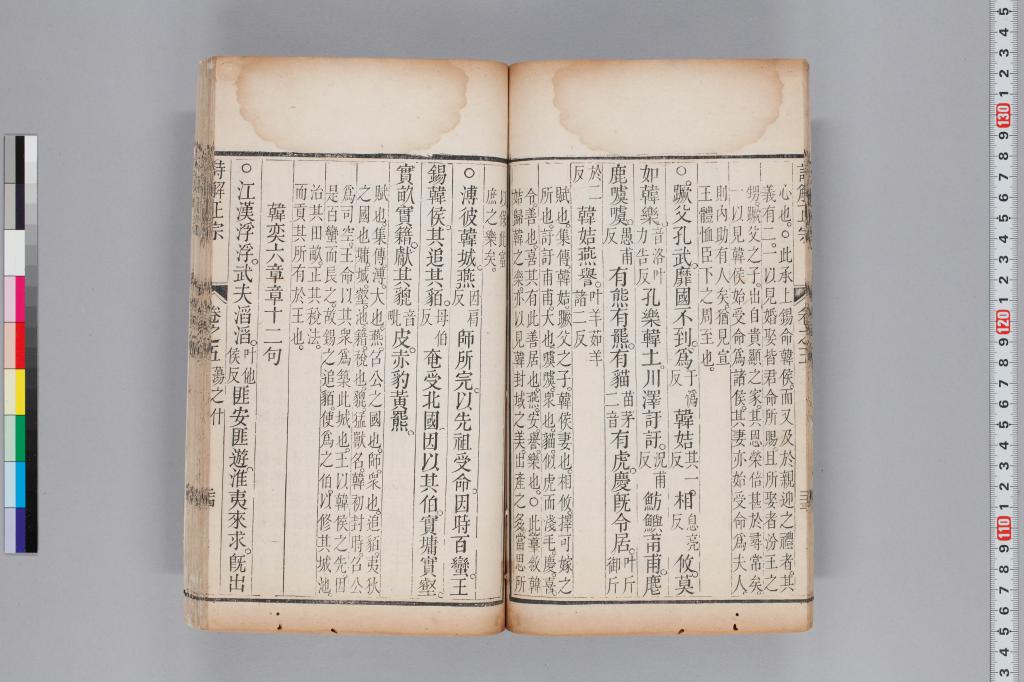 心也。○此承上錫命韓侯而又及於親迎之禮者其
義有二。一以見婚娶皆君命所賜且所娶者汾王之
甥蹶父之子。出自貴顯之家。其恩榮倍甚於尋常矣。
一以見韓侯始受命爲諸侯。其妻亦始受命爲夫人。
則内助有人矣猶見宣
王體恤臣下之周至也。
○蹶父孔武。靡國不到。爲于僞反韓姞其一反相息亮反攸。莫
如韓樂。音洛叶力告反孔樂韓土。川澤訏訏。況甫反魴鱮甫甫。麀
鹿噳噳。愚甫反有熊有羆。有貓苗茅二音有虎。慶旣令居。叶斤御斤
於二反韓姞燕譽。叶羊茹羊諸二反
賦也。集傳韓姞蹶父之子。韓侯妻也。相攸擇可嫁之
所也。訏訏甫甫大也。噳噳。衆也。貓似虎而淺毛。慶喜。
令善也。喜其有此善居也。燕安。譽樂也。○此章叙韓
姞歸韓之樂。亦以見韓封域之美。出產之多。當思所
以保此富
庶之樂矣。
○溥彼韓城。燕因肩反師所完。以先祖受命。因時百蠻。王
錫韓侯。其追其貊。母伯反奄受北國。因以其伯。實墉實壑。
實畝實籍。獻其貔音毗皮。赤豹黃羆。
賦也。集傳溥。大也。燕召公之國也。師。衆也。追貊夷狄
之國也。墉城。壑池。籍稅也。貔猛獸名。韓初封時召公
爲司空。王命以其衆爲築此城也。王以韓侯之先因
是百蠻而長之。故錫之追貊使爲之伯。以修其城池
治其田畝。正其稅法。
而貢其所有於王也。
韓奕六章章十二句
○江漢浮浮。武夫滔滔。叶他侯反匪安匪遊。淮夷來求。旣出
詩解正宗
卷之五
蕩之什